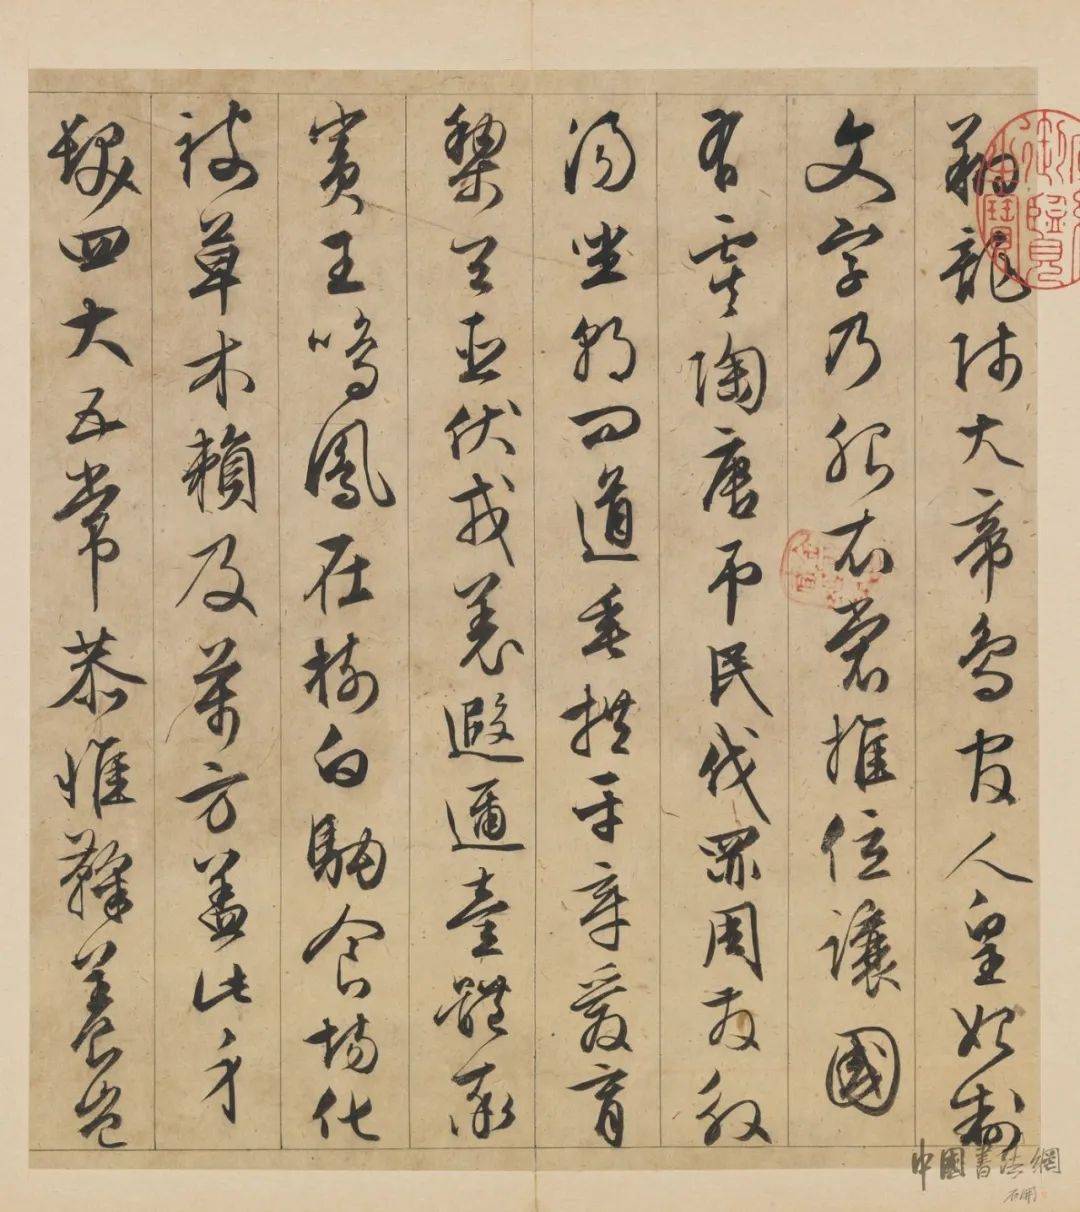 翔龍師火帝鳥官人皇始制
文字乃服衣裳推位讓國
有虞陶唐弔民伐罪周發殷
湯坐朝問道垂拱平章愛育
黎首臣伏戎羌遐邇壹體率
賓王鳴鳳在樹白駒食場化
被草木賴及萬方蓋此身
髮四大五常恭惟鞠養豈
御覽
中國書法網
石開